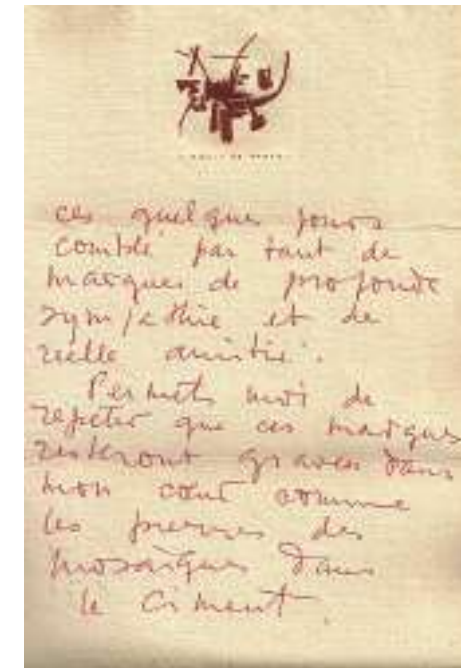 ces quelques jours
comblé par tant de
marques de profonde
sympathie et de
réelle amitié.
Permets moi de
repeter que ces marques
resteront gravées dans
mon cœur comme
les pierres des
mosaïques dans
le ciment.